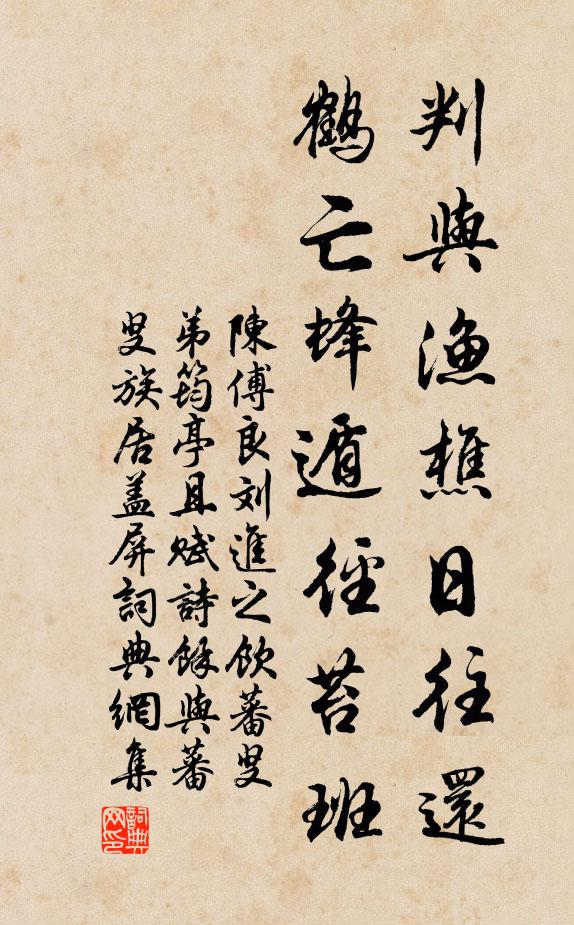 判與漁樵日往還
鶴亡蜂遁徑苔班
陳傅良刘進之飲蕃叟
弟筠亭且赋詩餘與蕃
叟族居盖屏詞典網集
詞典网印